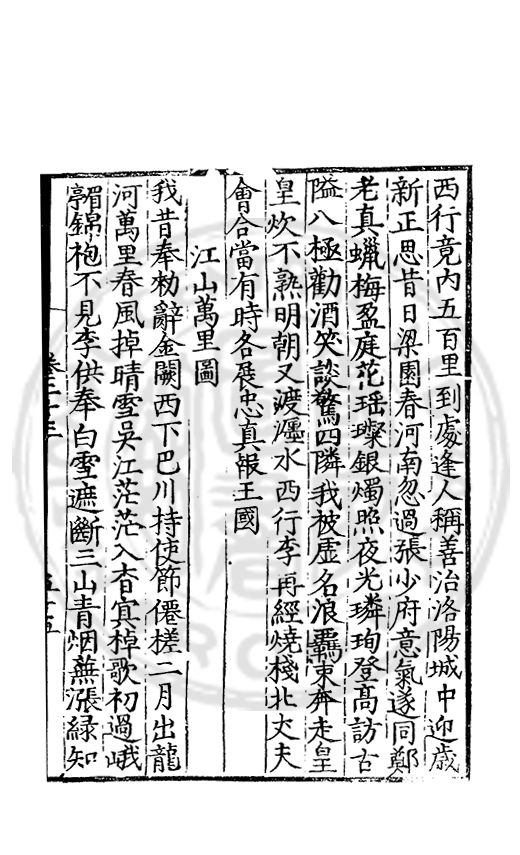 西行竟內五百里到處逢人稱善治洛陽城中迎歲
新正思昔日梁園春河南忽過張少府意氣遂同鄭
老真蠟梅盈庭花瑶璨銀燭照夜光璘珣登高訪古
隘八極勸酒笑談驚四隣我被虛名浪羈束奔走皇
皇炊不熟明朝又渡瀍水西行李再經燒棧北丈夫
會合當有時各展忠真報王國
江山萬里圖
我昔奉勑辭金闕西下巴川持使節僊槎二月出龍
河萬里春風掉晴雪吳江茫茫入杳冥棹歌初過峨
嵋錦袍不見李供奉白雪遮斷三山青烟蕪漲緑知